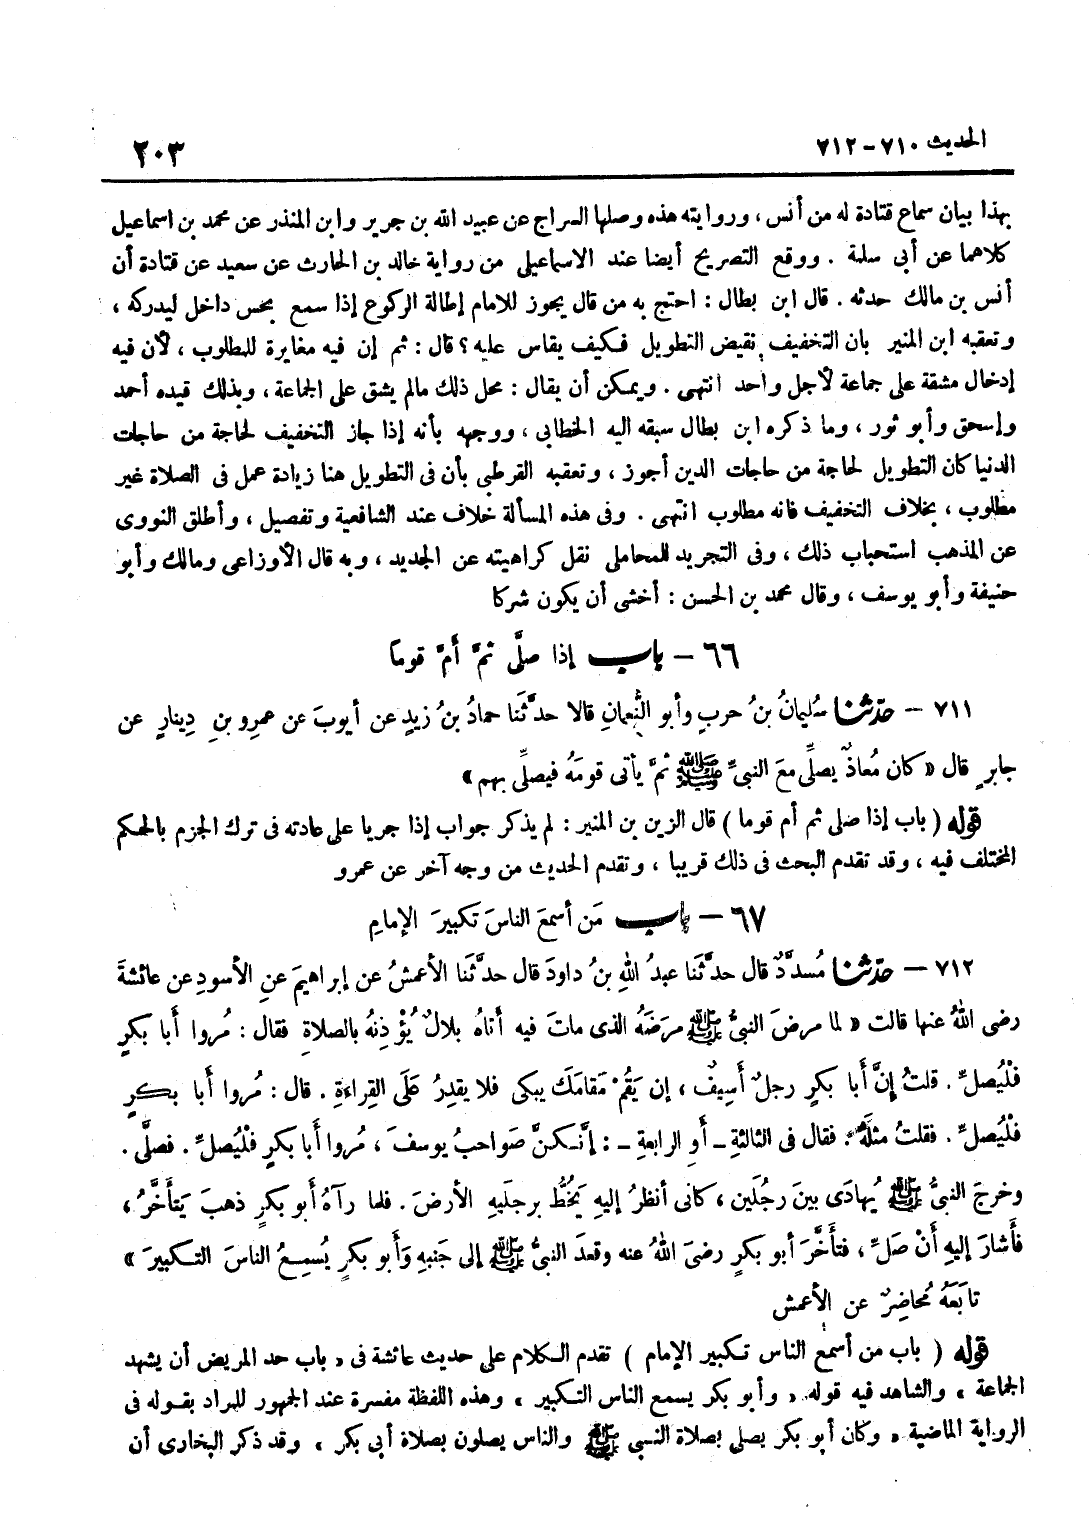 الحديث ٧١٠ - ٧١٢
٢٠٣
بهذا بيان سماع قتادة له من أنس ، وروايته هذه وصلها السراج عن عبيد الله بن جرير وابن المنذر عن محمد بن اسماعيل
كلاهما عن أبى سلمة . ووقع التصريح أيضا عند الاسماعيلى من رواية خالد بن الحارث عن سعيد عن قتادة أن
أنس بن مالك حدثه . قال ابن بطال : احتج به من قال يجوز للامام إطالة الركوع إذا سمع بحس داخل ليدركه ،
وتعقبه ابن المنير بان التخفيف نقيض التطويل فكيف يقاس عليه ؟ قال : ثم إن فيه مغايرة للمطلوب ، لأن فيه
إدخال مشقة على جماعة لأجل واحد انتهى . ويمكن أن يقال : محل ذلك مالم يشق على الجماعة ، وبذلك قيده أحمد
وإسحق وأبو ثور ، وما ذكره ابن بطال سبقه اليه الخطابى ، ووجهه بأنه إذا جاز التخفيف لحاجة من حاجات
الدنيا كان التطويل لحاجة من حاجات الدين أجوز ، وتعقبه القرطبى بأن فى التطويل هنا زيادة عمل فى الصلاة غير
مطلوب ، بخلاف التخفيف فانه مطلوب انتهى . وفى هذه المسألة خلاف عند الشافعية وتفصيل ، وأطلق النووى
عن المذهب استحباب ذلك ، وفى التجريد للمحاملى نقل كراهيته عن الجديد ، وبه قال الأوزاعى ومالك وأبو
حنيفة وأبو يوسف ، وقال محمد بن الحسن : أخشى أن يكون شركا
٦٦ - باب إذا صلَّى ثمَّ أمَّ قوماً
٧١١ - حدّثنا سُليمانُ بنُ حربٍ وأبو النُّعمانِ قالا حدَّثَنا حمادُ بنُ زيدٍ عن أيوبَ عن عمرِو بنِ دِينارٍ عن
جابرٍ قال « كان مُعاذٌ يصلِّى معَ النبىِّ ﷺ ثمَّ يأتى قومَهُ فيصلِّى بهم »
قوله ( باب إذا صلى ثم أم قوما ) قال الزين بن المنير : لم يذكر جواب إذا جريا على عادته فى ترك الجزم بالحكم
المختلف فيه ، وقد تقدم البحث فى ذلك قريبا ، وتقدم الحديث من وجه آخر عن عمرو
٦٧ - باب مَن أسمعَ الناسَ تكبيرَ الإمامِ
٧١٢ - حدّثنا مُسدَّدٌ قال حدَّثَنا عبدُ اللهِ بنُ داودَ قال حدَّثَنا الأعمشُ عن إبراهيمَ عنِ الأسودِ عن عائشةَ
رضى اللهُ عنها قالت « لما مرضَ النبىُّ ﷺ مرضَهُ الذى ماتَ فيه أتاهُ بلالٌ يُؤْذِنُهُ بالصلاةِ فقال : مُروا أبا بكرٍ
فلْيُصلِّ . قلتُ إنَّ أبا بكرٍ رجلٌ أسِيفٌ ، إن يَقُمْ مَقامَكَ يبكى فلا يقدِرُ عَلَى القِراءةِ . قال : مُروا أبا بكرٍ
فلْيُصلِّ . فقلتُ مثلَهُ . فقال فى الثالثةِ ــ أوِ الرابعةِ ــ : إنَّكنَّ صَواحبُ يوسفَ ، مُروا أبا بكرٍ فلْيُصلِّ . فصلَّى .
وخرجَ النبىُّ ﷺ يُهادَى بينَ رجُلَين ، كانى أنظرُ إليهِ يَخُطُّ برجلَيهِ الأرضَ . فلما رآهُ أبو بكرٍ ذهبَ يَتأَخَّرُ ،
فأشارَ إليهِ أنْ صَلِّ ، فتأخَّرَ أبو بكرٍ رضىَ اللهُ عنه وقعدَ النبىُّ ﷺ إلى جَنبهِ وأبو بكرٍ يُسمِعُ الناسَ التكبيرَ »
تابَعَهُ مُحاضِرٌ عن الأعمش
قوله ( باب من أسمع الناس تكبير الإمام ) تقدم الكلام على حديث عائشة فى « باب حد المريض أن يشهد
الجماعة » والشاهد فيه قوله « وأبو بكر يسمع الناس التكبير » وهذه اللفظة مفسرة عند الجمهور للمراد بقوله فى
الرواية الماضية « وكان أبو بكر يصلى بصلاة النبى ﷺ والناس يصلون بصلاة أبى بكر » وقد ذكر البخارى أن